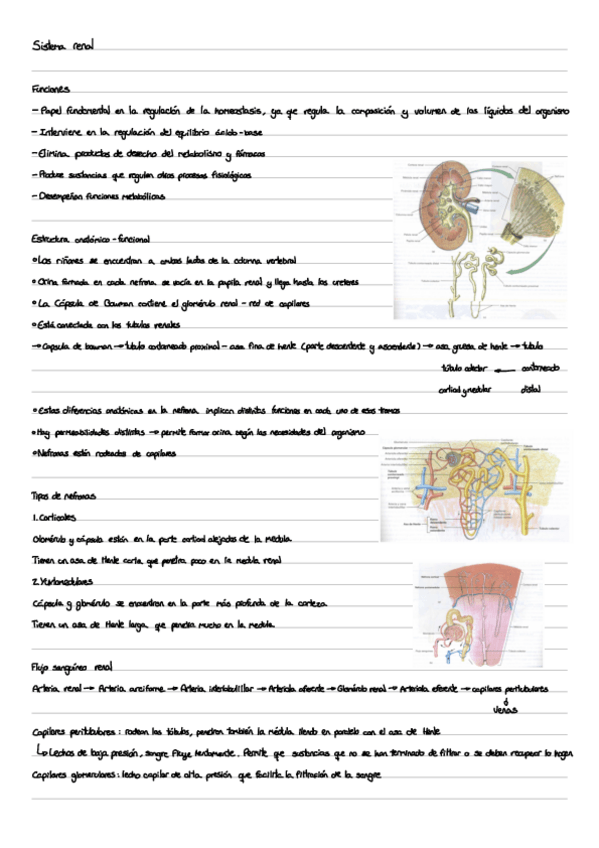 Sistema renal
Funciones
- Papel fundamental en la regulación de la homeostasis, ya que regula la composición y volumen de los líquidos del organismo
- Interviene en la regulación del equilibrio ácido-base
- Elimina productos de desecho del metabolismo y fármacos
- Produce sustancias que regulan otros procesos fisiológicos
- Desempeñan funciones metabólicas
Estructura anatómico-funcional
• Los riñones se encuentran a ambos lados de la columna vertebral
• Orina formada en cada nefrona se vacía en la papila renal y llega hasta los ureteres
• La Cápsula de Bowman contiene el glomérulo renal - red de capilares
• Está conectada con los túbulos renales
→ Capsula de bowman → túbulo contorneado proximal - asa fina de Henle (parte descendente y ascendente) → asa gruesa de Henle → túbulo
túbulo colector ← contorneado
cortical y medular distal
• Estas diferencias anatómicas en la nefrona implican distintas funciones en cada uno de esos tramos
• Hay permeabilidades distintas → permite formar orina según las necesidades del organismo
• Nefronas están rodeadas de capilares
Tipos de nefronas
1. Corticales
Glomérulo y cápsula están en la parte cortical alejadas de la médula
Tienen un asa de Henle corta que penetra poco en la medula renal
2. Yuxtamedulares
Cápsula y glomérulo se encuentran en la parte más profunda de la corteza.
Tienen un asa de Henle larga que penetra mucho en la medula.
Flujo sanguíneo renal
Arteria renal → Arteria arciforme → Arteria interlobulillar → Arteriola aferente → Glomérulo renal → Arteriola eferente → capilares peritubulares
↓
venas
Capilares peritubulares: rodean los túbulos, penetran también la médula yendo en paralelo con el asa de Henle
↳ Lechos de baja presión, sangre fluye lentamente. Permite que sustancias que no se han terminado de filtrar o se deban recuperar lo hagan
Capilares glomerulares: lecho capilar de alta presión que facilita la filtración de la sangre